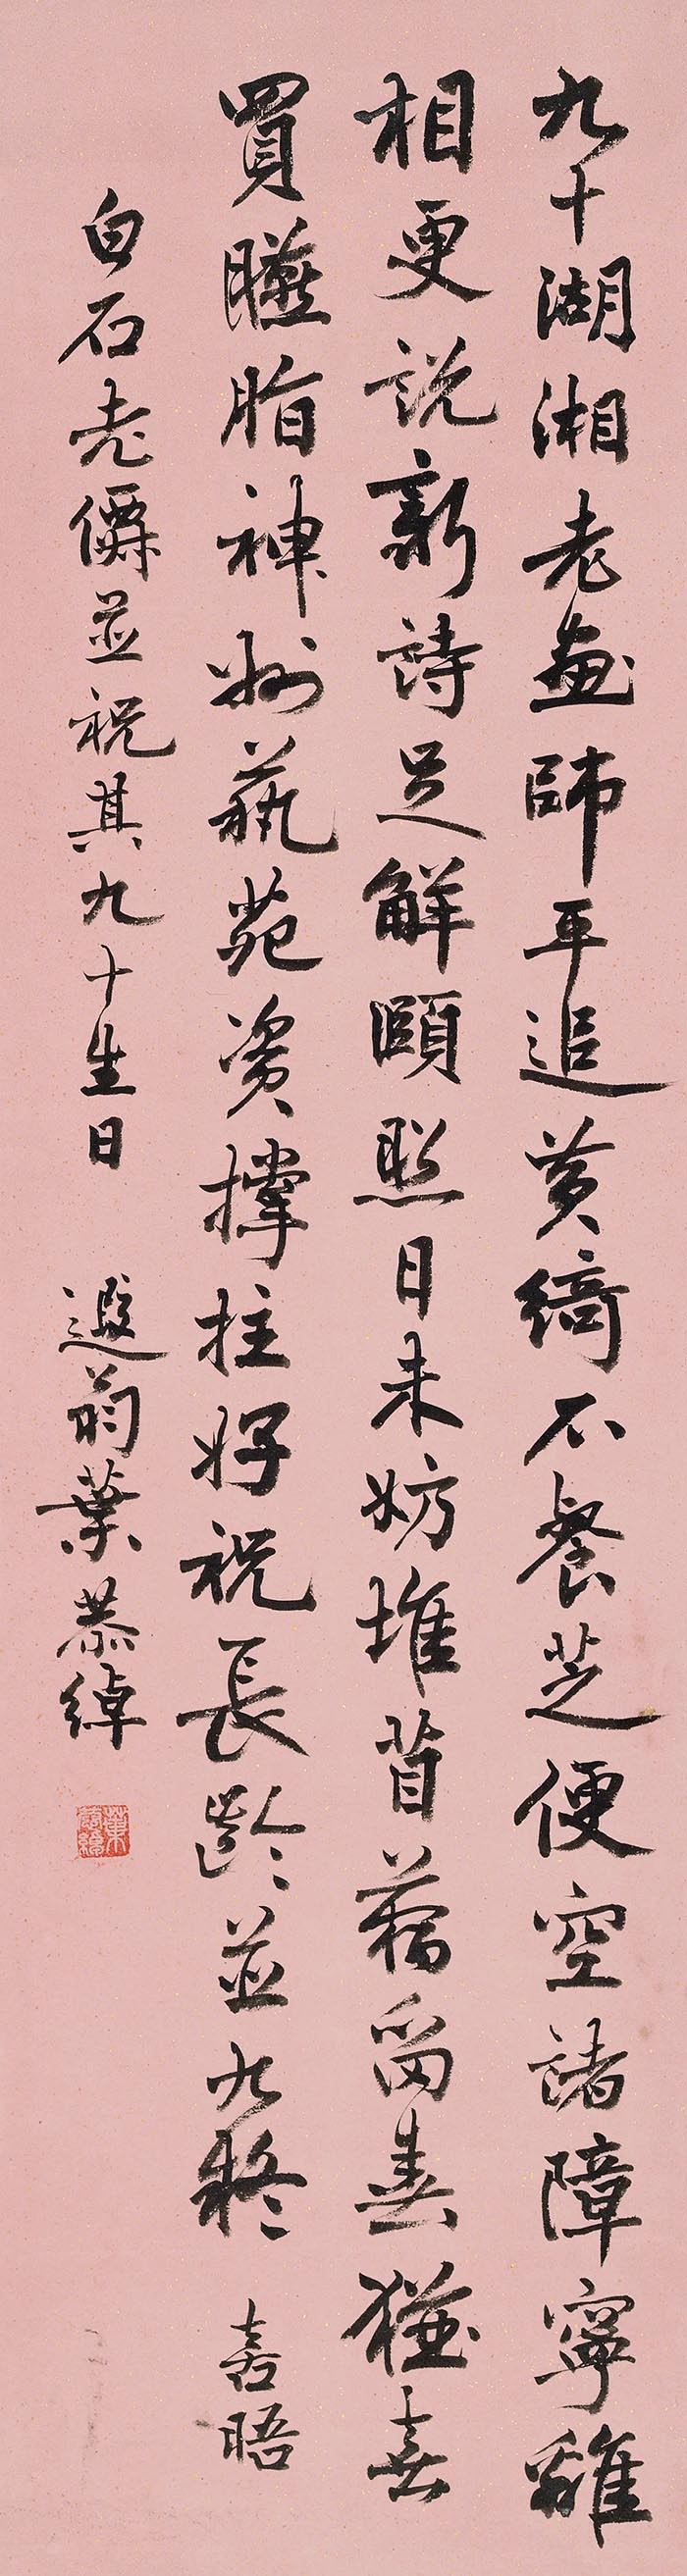 九十湖湘老畫師平追黃綺不餐芝便空諸障寧離
相更說新詩足解頤照日未妨堆苜蓿留春猶喜
買臙脂神州藝苑資撐拄好祝長齡並九疑 喜晤
白石老僊並祝其九十生日 遐翁葉恭綽
葉恭綽